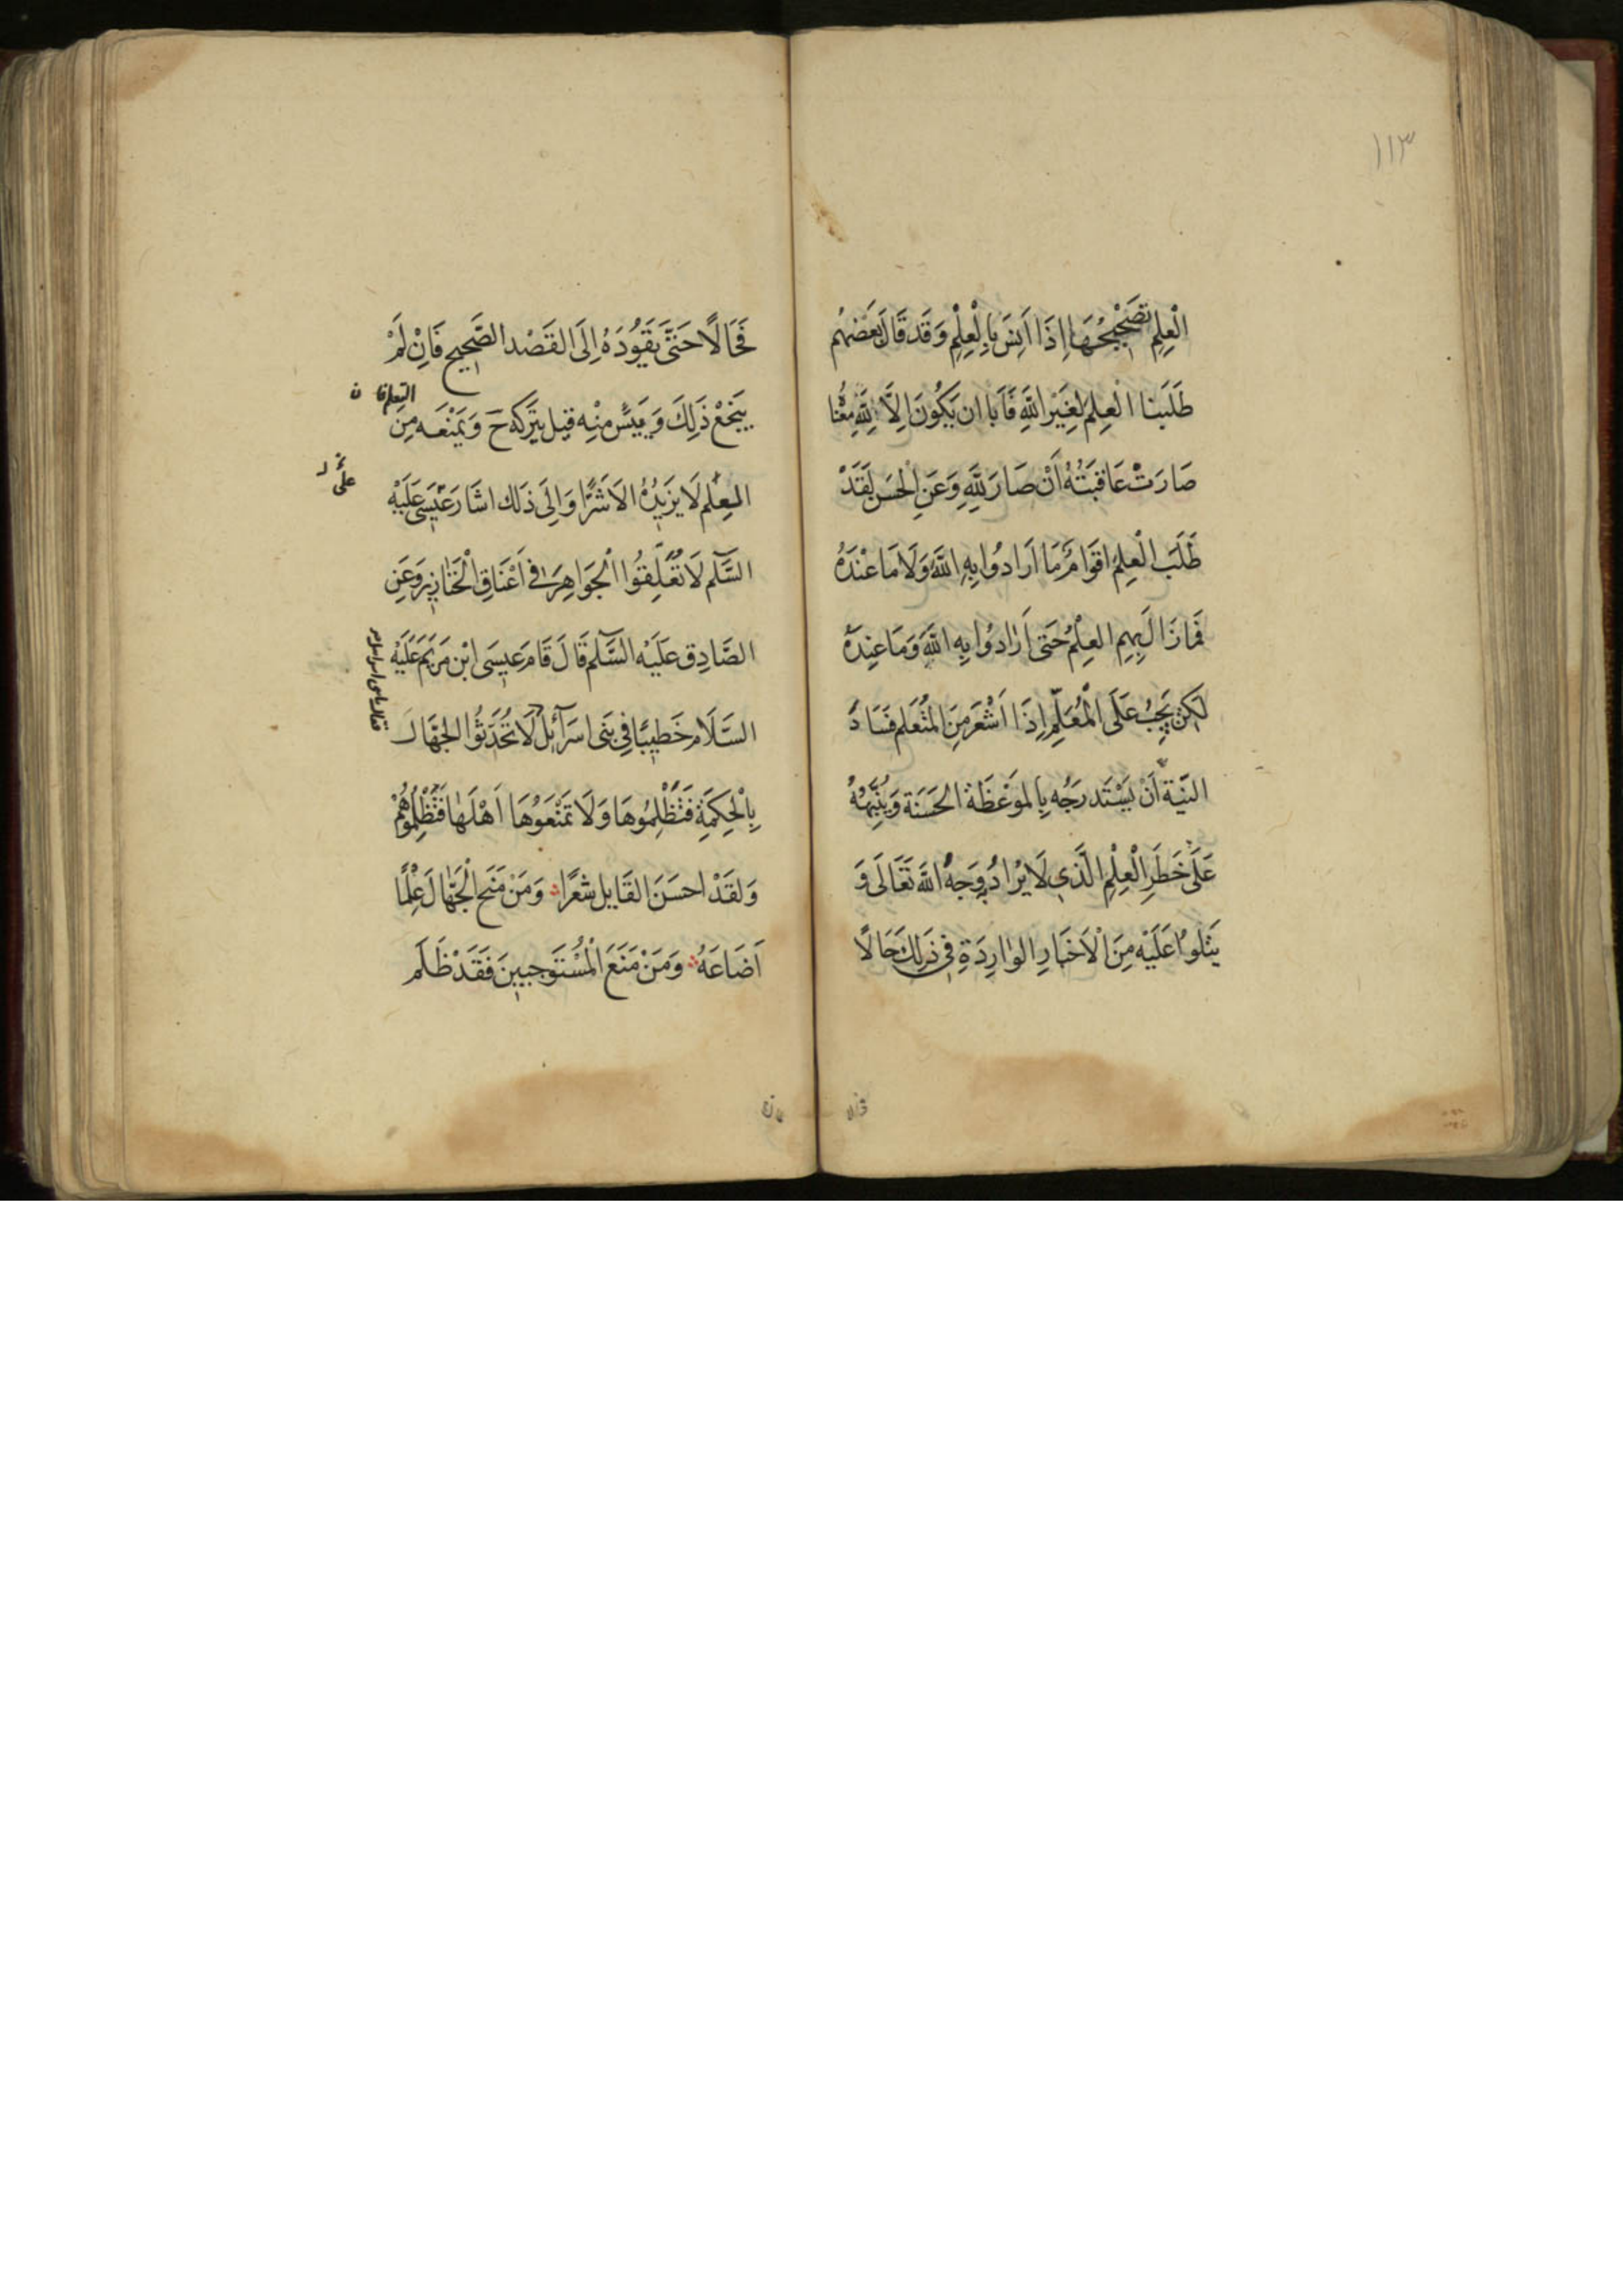 ١١٣
الْعِلِمِ تَصَحْيْحُهَا اِذَا اَنِسَ بِالْعِلْمِ وَقَد قَالَ بَعَضهُم
طَلَبنا الْعِلمَ لِغَيَرِ اللَّهِ فَاَبا ان يَكُونَ اِلَّا لِلَّهِ مِعْنا
صَارَتْ عَاقِبَتُهُ اَنْ صَارَ لِلَّهِ وَعَنِ الْحَسَن لَقَدْ
طَلَبَ الْعِلمَ اَقوَامٌ مَا اَرَادُوا بِهِ اللَّهَ وَلَا مَا عنْدَهُ
فَمَا زَالَ بِهِمِ العِلْمُ حَتى اَرَادوُا بِهِ اللَّهَ وَمَا عِنِدَهُ
لكِن يَجِبُ عَلَى الْمُعَلِّمِ اِذَا اَشْعَرَ مِنَ المُتَعَلم فَسَادَ
النيَّة اَنْ يَسْتَدرَجُه بِالموَعَظَة الحَسَنَة وَيُنَبِّهُهُ
عَلَى خَطَرِ الْعِلْمِ الَّذي لَا يُرادُ وَجهُ اللَّه تَعَالَى وَ
يَتْلوُا عَلَيْه مِنَ الْاَخبَارِ الوٰارِدَةِ فى ذَلِكَ حَالًا
فَحَالًا حَتّىَ يَقوُدَهُ اِلَى القَصْد الصَّحِيحِ فَاِنْ لَمْ
يَنجَعْ ذَلِكَ وَيَيئسَ مِنْه قيل يَترَكه حَ وَيَمْنَعَه مِنَ
التعلم فان
المعِلم لَا يَزيدُهُ الا شَرًّا وَاِلَى ذَلك اشَارَ عيَسَى عَلَيْه
على
السَّلم لَا تُعَلِّقوُا الْجَوَاهِرَ فى اَعْنَاقِ الْخَنازِيِر وَعَنِ
الصَّادِق عَلَيْه السَّلم قَالَ قَامَ عيسَى ابْن مَريَم عَلَيْه
السَّلَام خَطيبًا فِي بَنى اسرَآئلَ لَا تُحَدّثوُا الجهَّالَ
فقال يا بنى اسرائيل
بِالْحِكمَةِ فَتَظْلِمُوهَا وَلَا تَمْنَعُوْهَا اَهْلَهَا فَتَظْلِمُوهُمْ
وَلَقَدْ احسَنَ القَايل شعًرا وَمَنْ مَنَحَ الْجَهّالَ عِلْمًا
اَضَاعَهُ وَمَنْ مَنَعَ الْمُسْتَوجبينَ فَقَدْ ظَلَمَ